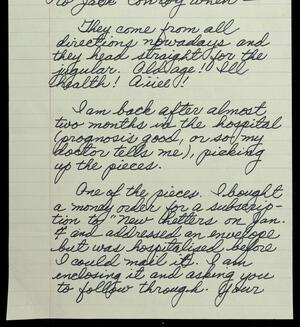 to Jack Conroy when —
They come from all
directions nowadays and
they head straight for the
jugular. Old age! Ill
health! Aiiee!
I am back after almost
two months in the hospital
(prognosis good, or so my
doctor tells me), picking
up the pieces.
One of the pieces. I bought
a money order for a subscrip-
tion to "New Letters on Jan.
4 and addressed an envelope
but was hospitalised before
I could mail it. I am
enclosing it and asking you
to follow through. Your